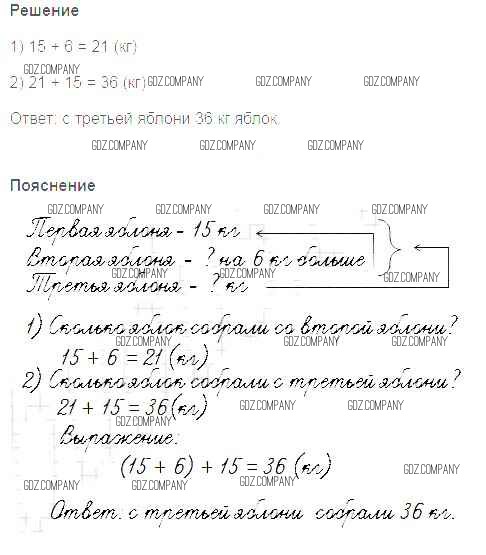 Решение
1) 15 + 6 = 21 (кг)
GDZ.COMPANY
2) 21 + 15 = 36 (кг) GDZ.COMPANY GDZ.COMPANY GDZ.COMPANY
Ответ: с третьей яблони 36 кг яблок.
GDZ.COMPANY GDZ.COMPANY GDZ.COMPANY
Пояснение
GDZ.COMPANY GDZ.COMPANY GDZ.COMPANY GDZ.COMPANY
Первая яблоня - 15 кг
Вторая яблоня - ? на 6 кг больше
GDZ.COMPANY GDZ.COMPANY GDZ.COMPANY
Третья яблоня - ? кг
1) Сколько яблок собрали со второй яблони?
GDZ.COMPANY GDZ.COMPANY GDZ.COMPANY
15 + 6 = 21 (кг)
2) Сколько яблок собрали с третьей яблони?
21 + 15 = 36 (кг) GDZ.COMPANY GDZ.COMPANY
GDZ.COMPANY
Выражение:
(15 + 6) + 15 = 36 (кг) GDZ.COMPANY
GDZ.COMPANY GDZ.COMPANY GDZ.COMPANY
Ответ. с третьей яблони собрали 36 кг.